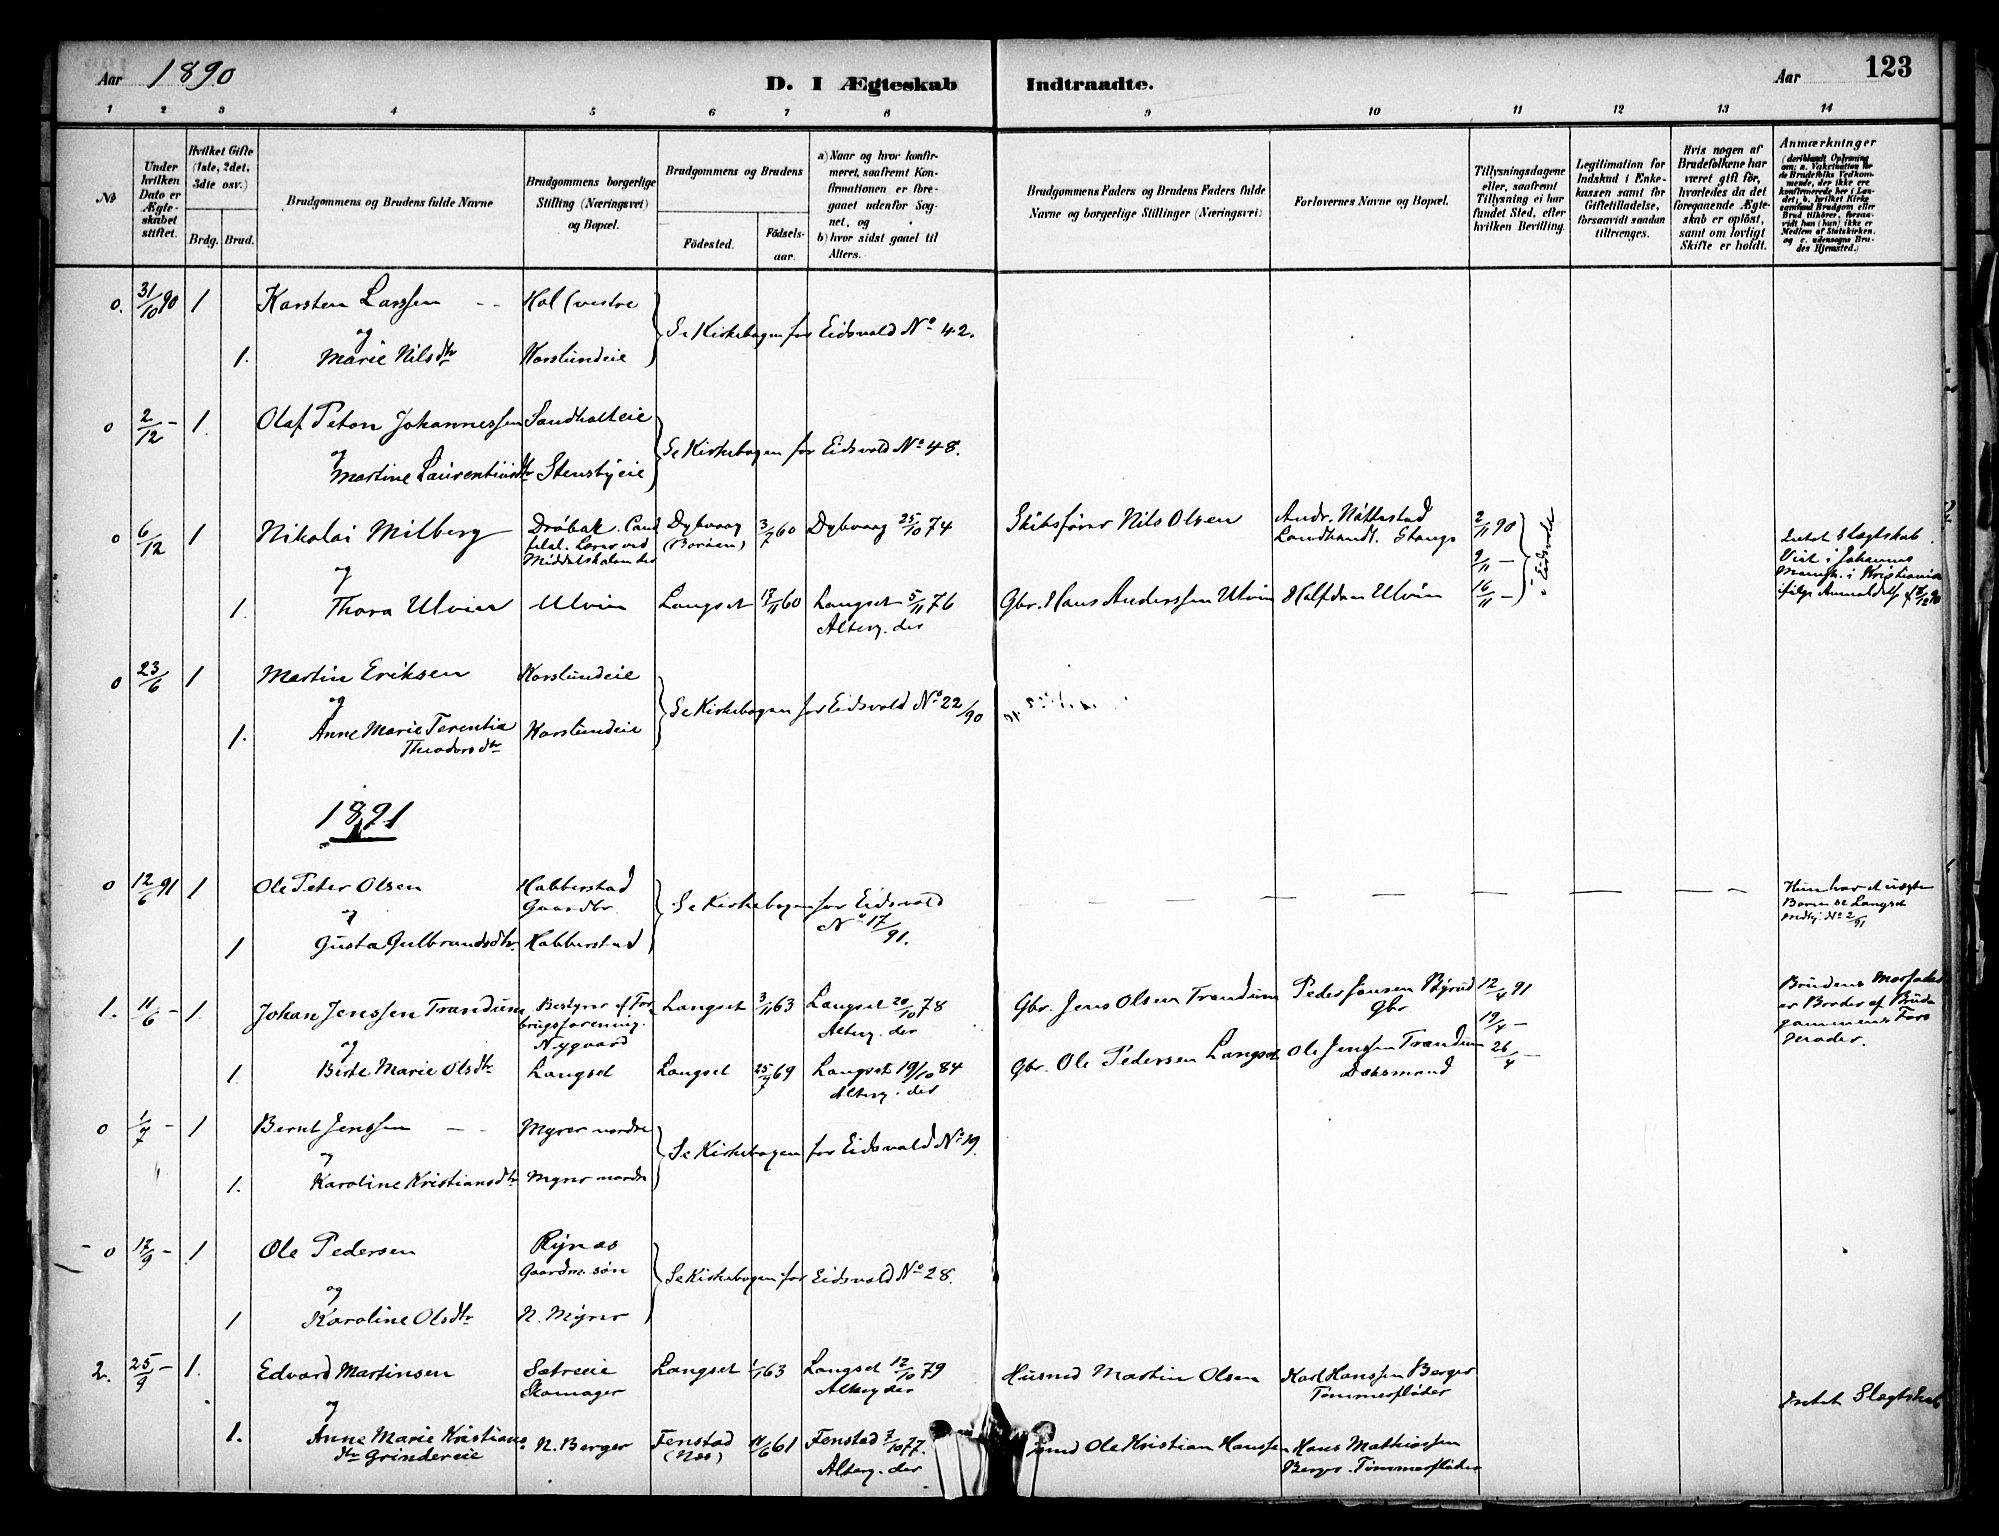 Aar 1890
D. I Ægteskab Indtraadte.
Aar 123
1 2 3 4 5 6 7 8 9 10 11 12 13 14
No
Under hvilken Dato er Ægteskabet stiftet.
Hvilket Gifte (1ste, 2det, 3die osv.)
Brdg. Brud.
Brudgommens og Brudens fulde Navne
Brudgommens borgerlige Stilling (Næringsvei) og Bopæl.
Brudgommens og Brudens
Födested. Födselsaar.
a) Naar og hvor konfirmeret, saafremt Konfirmationen er foregaaet udenfor Sognet, og
b) hvor sidst gaaet til Alters.
Brudgommens Faders og Brudens Faders fulde Navne og borgerlige Stillinger (Næringsvei)
Forlovernes Navne og Bopæl.
Tillysningsdagene eller, saafremt Tillysning ei har fundet Sted, efter hvilken Bevilling.
Legitimation for Indskud i Enkekassen samt for Giftetilladelse, forsaavidt saadan tiltrænges.
Hvis nogen af Brudefolkene har været gift før, hvorledes da det foregaaende Ægteskab er oplöst, samt om lovligt Skifte er holdt.
Anmærkninger
(deriblandt Oplysning om: a. Vakcination for de Brudefolks Vedkommende, der ikke ere konfirmerede her i Landet; b. hvilket Kirkesamfund Brudgom eller Brud tilhörer, forsaavidt han (hun) ikke er Medlem af Statskirken, og c. udensogns Brudes Hjemsted.)
0. 31/10 90 1 Karsten Larssen - - Hol (vestre
og Se Kirkebogen for Eidsvold No 42.
1. Marie Nilsdtr Korslundeie
0 2/12 - 1. Olaf Peton Johannessen Sandholteie
og Se Kirkebogen for Eidsvold No 48.
Martine Laurentiusdtr Stensbyeie
0 6/12 1 Nikolai Milberg Dröbak. Cand filol. Lærer ved Middelskolen der Dybvaag (Borøen) 3/7 60 Dybvaag 25/10 74 Skibsfører Nils Olsen Andr. Nöttestad Landhandl. Stange 2/11 90
og 9/11 - i Eidsvold
1. Thora Ulvin Ulvin Langset 17/11 60 Langset 5/11 76 Alterg. der Gbr. Hans Anderssen Ulvin Halfdan Ulvin 16/11 -
Intet Slægtskab.
Viet i Johannes
Mengh. i Kristiania
ifölge Anmeldelse
0 23/6 1 Martin Eriksen Korslundeie
og Se Kirkebogen for Eidsvold No 22/90
1. Anne Marie Terentia Theodorsdtr Korslundeie
1891
0 12/6 91 1 Ole Peter Olsen Habberstad Gaardbr.
og Se Kirkebogen for Eidsvold No 17/91.
1 Gusta Gulbrandsdtr. Habberstad
Hun har et uægte
Barn se Langset
No 2/91
1. 11/6 - 1. Johan Jenssen Trandum Bestyrer af Forbrugsforening. Nygaard Langset 3/11 63 Langset 20/10 78 Alterg. der Gbr. Jens Olsen Trandum Peder Jansen Byrud Gbr 12/4 91
og 19/4 -
1. Berte Marie Olsdtr Langset Langset 25/7 69 Langset 19/10 84 Alterg. der Gbr. Ole Pedersen Langset Ole Jenssen Trandum 26/4 -
Brudens Morfader
er Broder af Brud-
gommens Far-
fader.
0 1/7 - 1 Bernt Jenssen - - Myrer nordre
og Se Kirkebogen for Eidsvold No 19.
1. Karoline Kristiansdtr Myrer nordre
0 17/9 - 1 Ole Pedersen Rynas Gaardm. sön
og Se Kirkebogen for Eidsvold No 28.
1 Karoline Olsdtr N. Myrer
2. 25/9 - 1. Edvard Martinsen Sætreeie Skomager Langset 1/1 63 Langset 12/10 79 Alterg der Husmd Martin Olsen Karl Hanssen Berger Tömmerflöder
og Intet Slægtskab
1. Anne Marie Kristiansdtr Grindereie N. Berger Fenstad (Nes) 11/6 61 Fenstad 7/10 77. Alterg. der Ole Kristian Hanssen Hans Mathiassen Berger Tömmerflöder